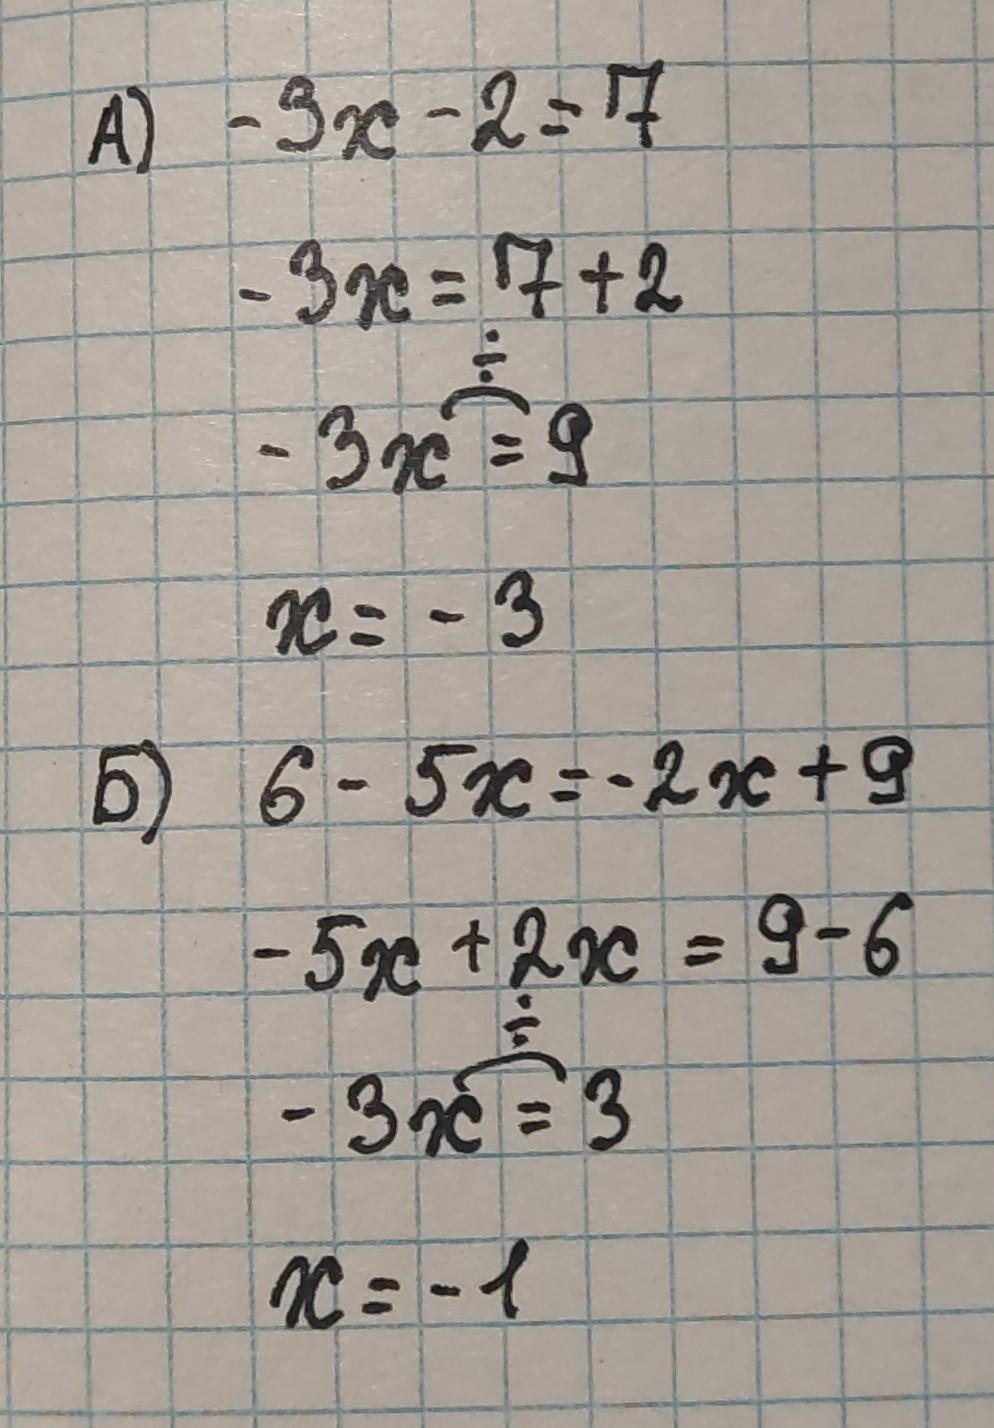 А) -3x - 2 = 7
-3x = 7 + 2
÷
-3x = 9
x = - 3
Б) 6 - 5x = -2x + 9
-5x + 2x = 9 - 6
÷
-3x = 3
x = - 1